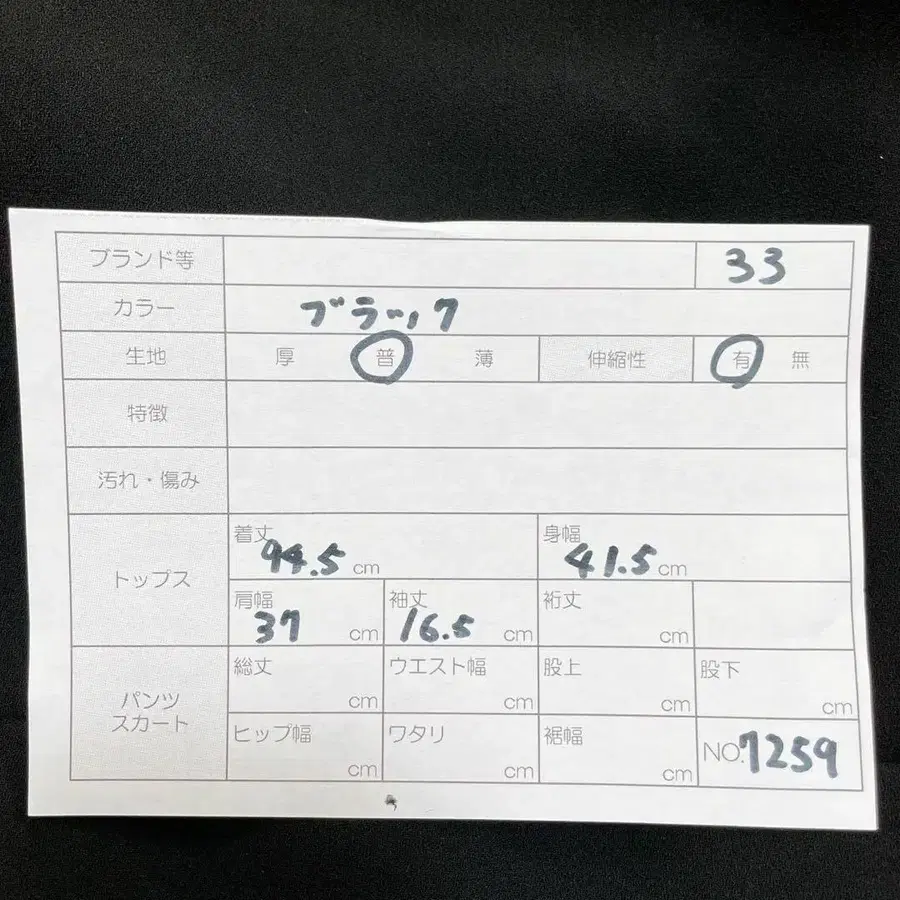 ブランド等 33
カラー ブラック
生地 厚 普 薄 伸縮性 有 無
特徴
汚れ・傷み
トップス
着丈 94.5 cm 身幅 41.5 cm
肩幅 37 cm 袖丈 16.5 cm 裄丈 cm
パンツ
スカート
総丈 cm ウエスト幅 cm 股上 cm 股下 cm
ヒップ幅 cm ワタリ cm 裾幅 cm NO.7259